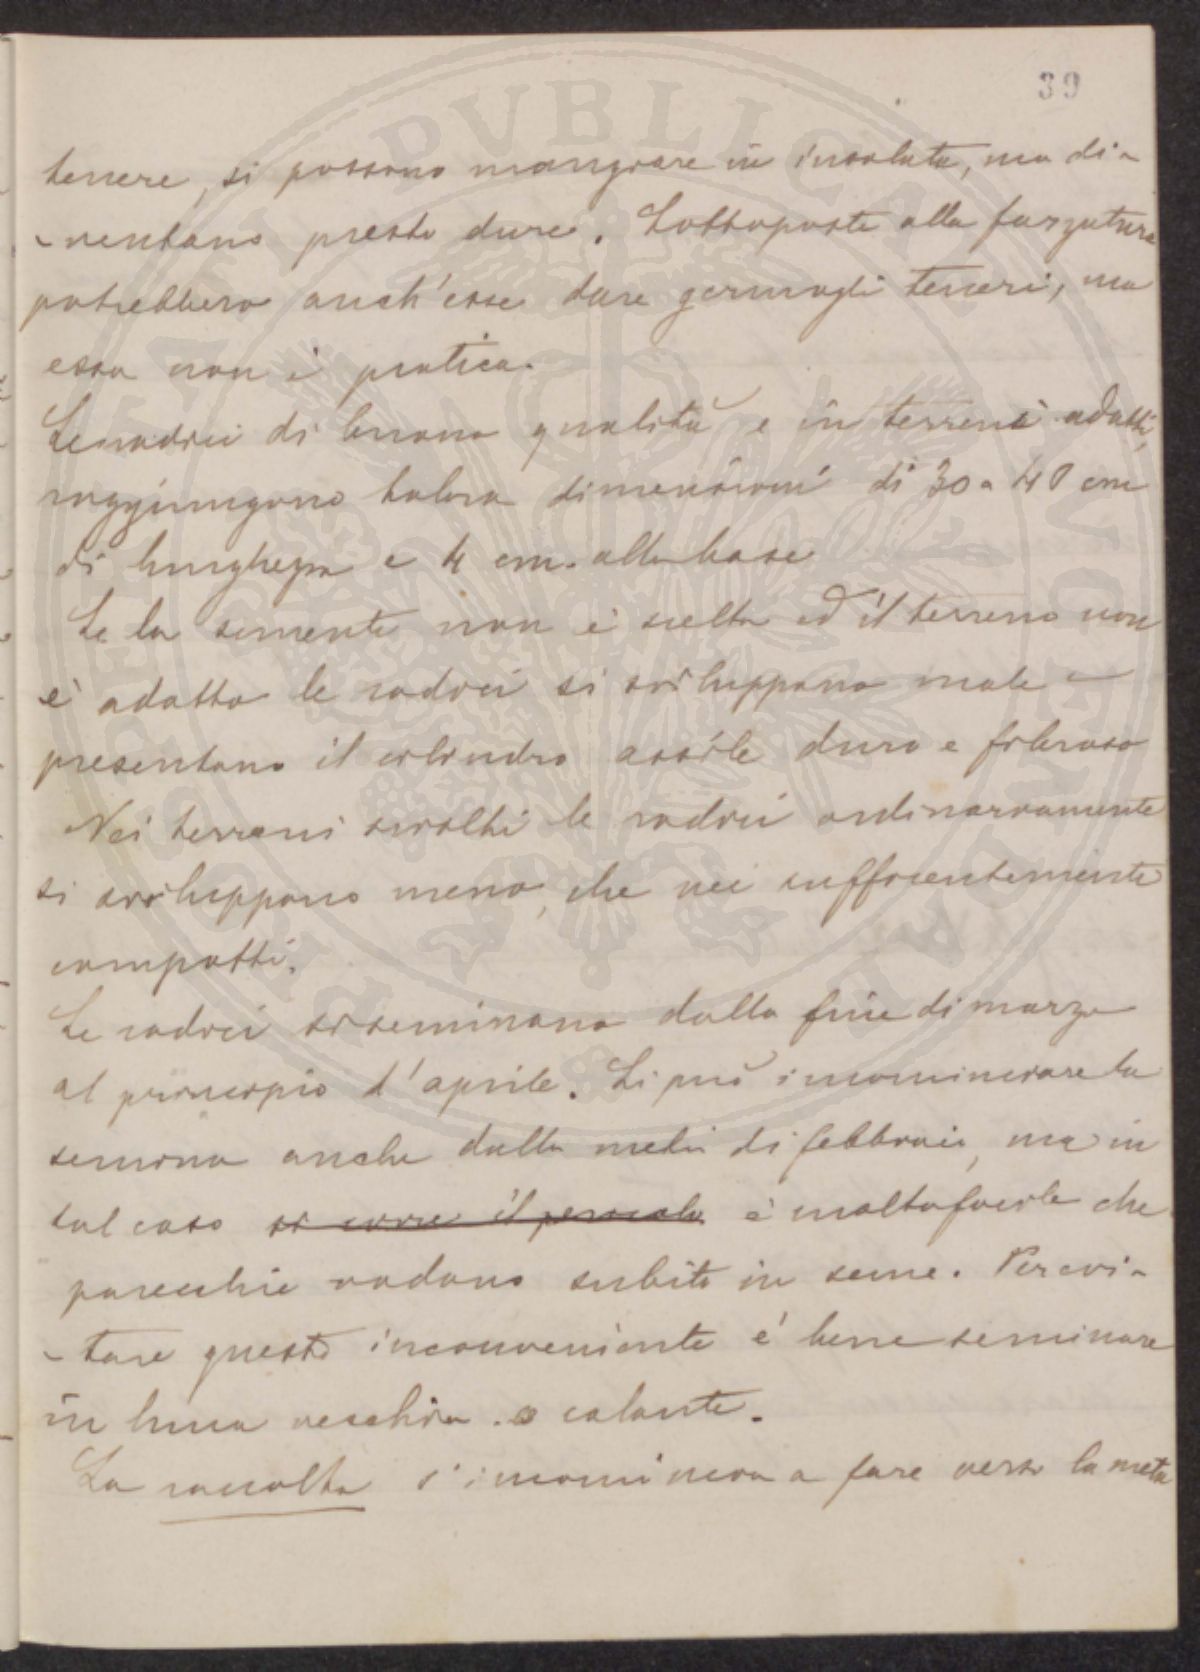 39
tenere, si possono mangiare in insalata, ma di-
-ventano presto dure. Sottoposte alla forzatura
potrebbero anch'esse dare germogli teneri, ma
essa non è pratica.
Le radici di buona qualità e in terreni adatti,
raggiungono talora dimensioni di 30 a 40 cm
di lunghezza e 4 cm. alla base
Se la semente non è scelta ed il terreno non
è adatto le radici si sviluppano male e
presentano il cilindro assile duro e fibroso
Nei terreni sciolti le radici ordinariamente
si sviluppano meno, che nei sufficientemente
compatti.
Le radici si seminano dalla fine di marzo
al principio d'aprile. Si può incominciare la
semina anche dalla metà di febbraio, ma in
tal caso si corre il pericolo è molto facile che
parecchie vadano subito in seme. Per evi-
-tare questo inconveniente è bene seminare
in luna vecchia o calante.
La raccolta s'incomincia a fare verso la metà
PVBLICAE